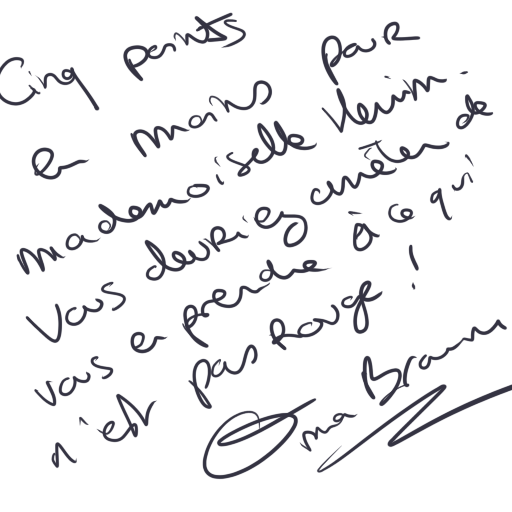 Cinq points
en moins pour
mademoiselle Venin.
Vous devriez arrêter de
vous en prendre à ce qui
n'est pas Rouge !
Oma Brann